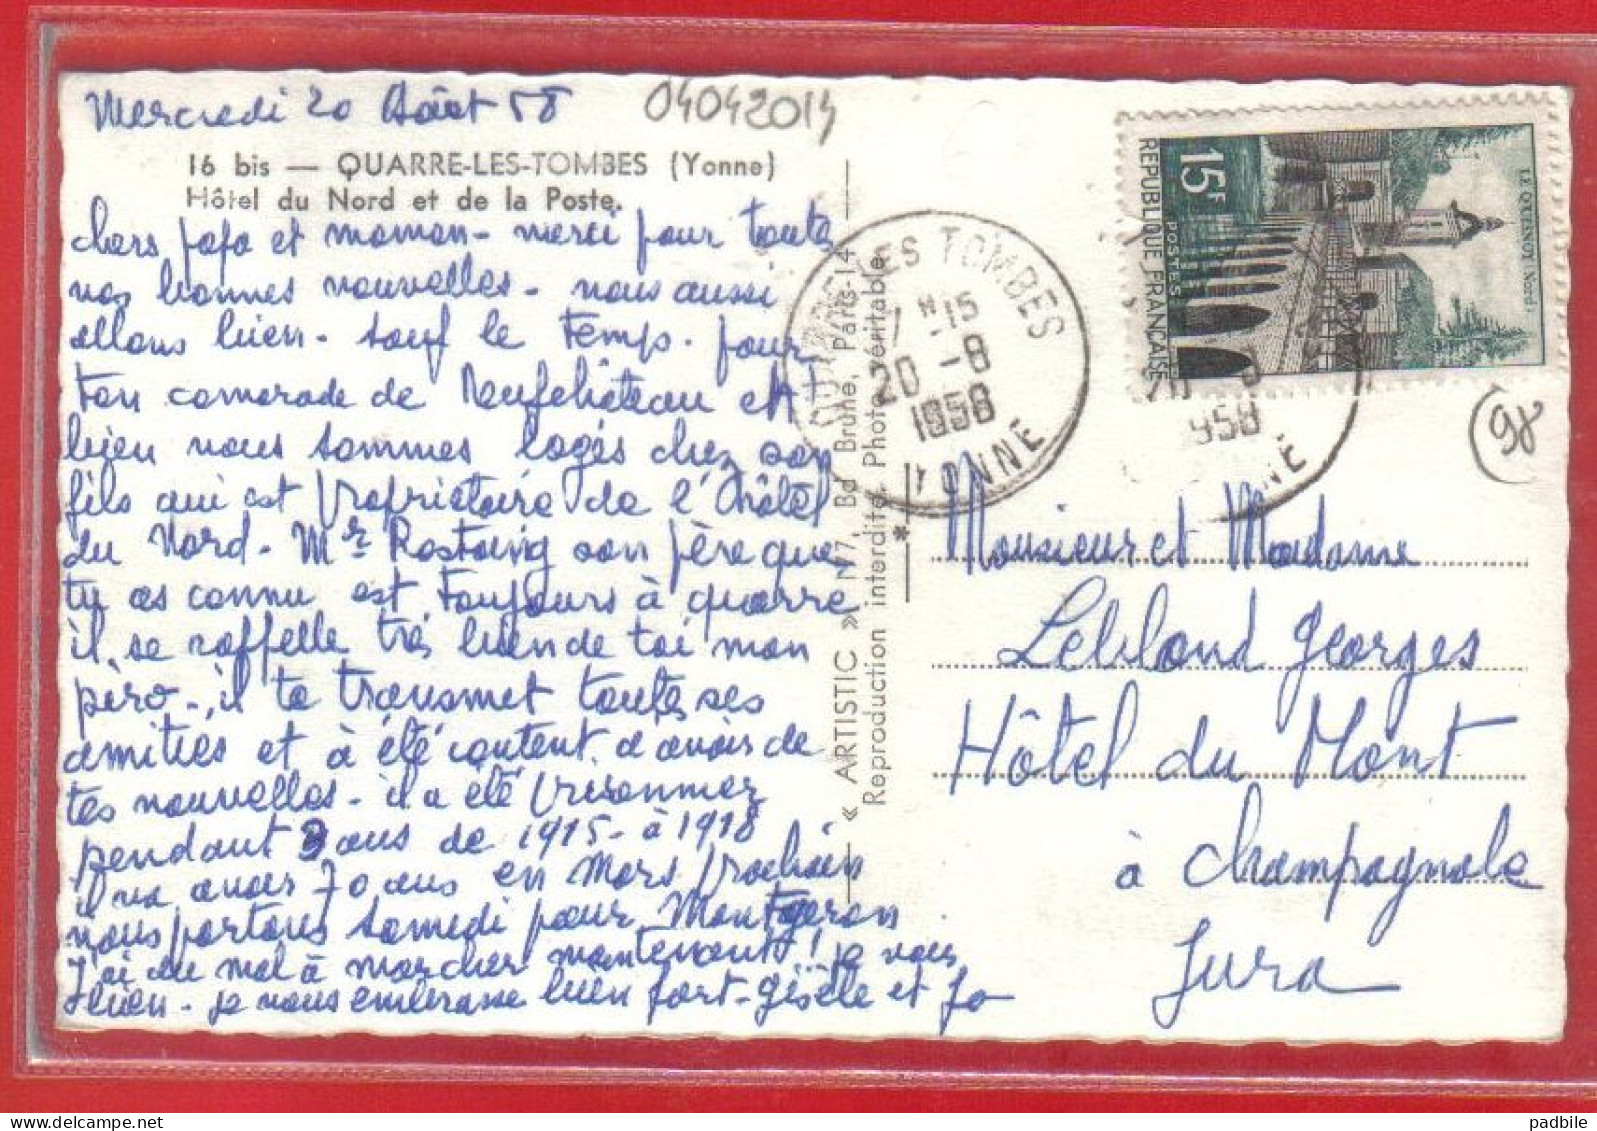 Mercredi 20 Août 58
04042014
16 bis — QUARRE-LES-TOMBES (Yonne)
Hôtel du Nord et de la Poste.
chers papa et maman - merci pour toute
vos bonnes nouvelles - nous aussi
allons bien - sauf le temps. pour
ton camarade de Neufchateau et
bien nous sommes logés chez son
fils qui est propriétaire de l'Hôtel
du Nord - Mr Rostaing son père que
tu as connu est toujours à quarré
il se rappelle très bien de toi mon
père - il te transmet toute ses
amitiés et à été content d'avoir de
tes nouvelles - il a été prisonnier
pendant 3 ans de 1915 - à 1918
il va avoir 70 ans en Mars prochain
nous partons samedi pour Montgeron
J'ai du mal à marcher maintenant! je vous
bien - je vous embrasse bien fort - Gisèle et Jo
« ARTISTIC » N 7, Bd Brune, Paris-14
Reproduction interdite. Photo véritable.
QUARRE-LES TOMBES
20 -8
1958
YONNE
15F
REPUBLIQUE FRANÇAISE
POSTES
LE QUESNOY (Nord)
958
NNE
98
Monsieur et Madame
Leblond Georges
Hôtel du Mont
à Champagnole
Jura
padbile